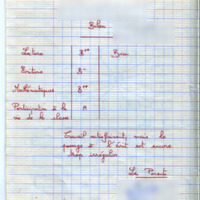 Bilan
Lecture B++ Bien
Ecriture B-
Mathématiques B++
Participation à la A
vie de la classe
Travail satisfaisant, mais le
passage à l'écrit est encore
trop irrégulier.
Le Parent